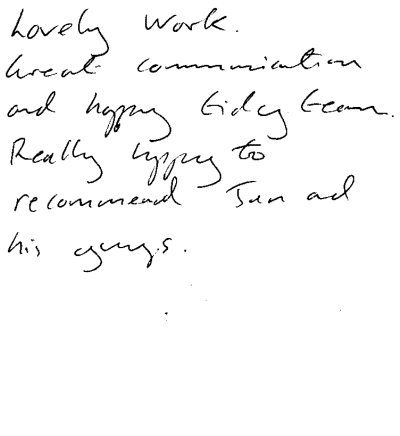 Lovely work.
Great communication
and happy tidy team.
Really happy to
recommend and
his guys.